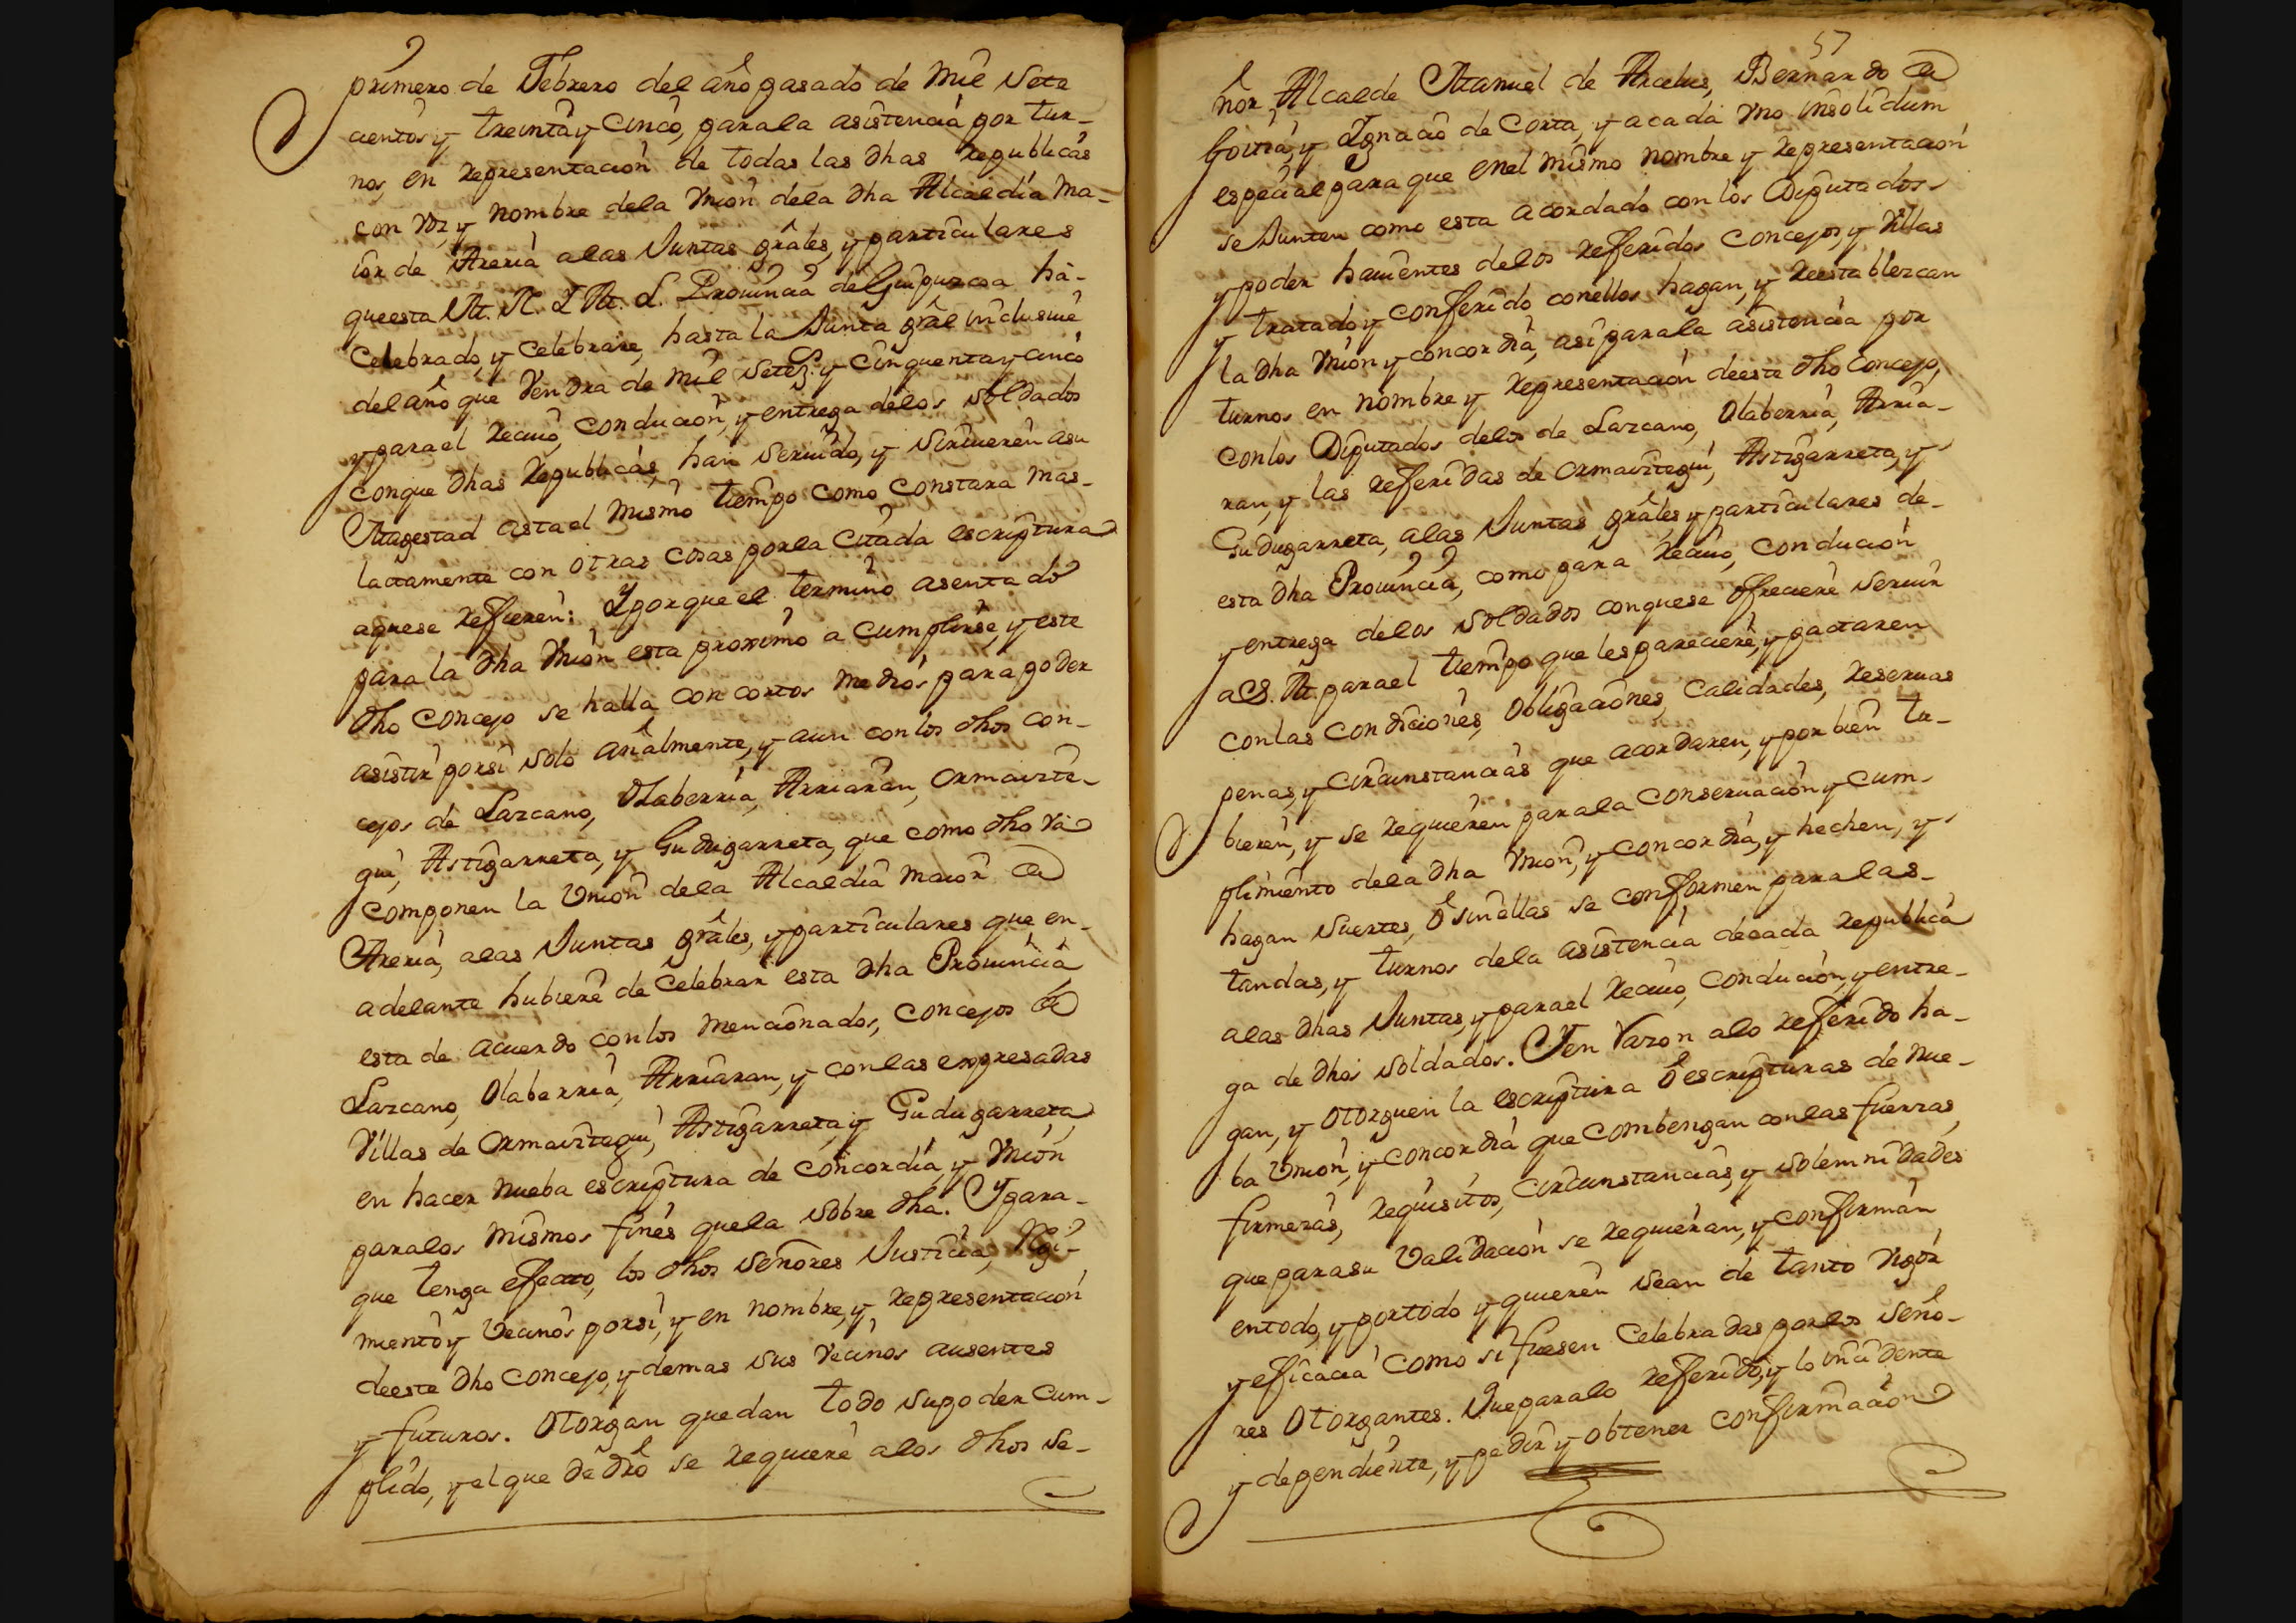 primero de Febrero del año pasado de Mil Sete
cientos y treinta y Cinco, para la asistencia por tur-
nos, en representacion de todas las dhas Republicas
con voz, y nombre dela Union dela dha Alcaldia Ma-
ior de Areria alas Juntas grâles, y particulares
que esta M. N. Y M. L. Provincia de Guipuzcoa ha-
Celebrado, y Celebrare, hasta la Junta grâl inclusive
del año que Vendra de Mil Setez.s y Cinquenta y cinco
y para el recivo, conducion, y entrega delos Soldados
con que dhas Republicas, han servido, y Sirvieren asu
Magestad asta el mismo tiempo como constara mas-
latamente con otras cosas por la Citada escriptura
aque se refieren: Y por que el termino asentado
para la dha Union esta proximo a Cumplirse, y este
dho Concejo se halla con cortos medios para poder
asistir por si solo añalmente, y aun con los dhos con-
cejos de Lazcano, Olaberria, Arriaran, Ormaizte-
gui, Astigarreta, y Gudugarreta, que como dho va
componen la Union dela Alcaldia maior de
Areria, alas Juntas grâles, y particulares que en-
adelante hubiere de Celebrar esta dha Provincia
esta de acuerdo con los mencionados, Concejos de
Lazcano, Olaberria, Arriaran, y con las expresadas
Villas de Ormaiztegui, Astigarreta, y Gudugarreta,
en hacer nueba escriptura de Concordia, y Union
para los mismos fines que la sobre dha. Y para-
que tenga efecto, los dhos Señores Justicia, Regi-
miento y Vecinos por si, y en nombre, y representacion
de este dho Concejo, y demas sus vecinos ausentes
y futuros. Otorgan que dan todo su poder Cum-
plido, y el que de dro se requiere alos dhos Se-
57
ñor, Alcalde Manuel de Arcelus, Bernardo de
Goitia, y Ygnacio de Corta, y a cada uno insolidum
especial para que en el mismo nombre y representacion
se Junten como esta acordado con los Diputados
y poder havientes delos referidos Concejos, y Villas
y tratado, y conferido con ellos hagan, y reestablezcan
la dha Union y concordia, asi para la asistencia por
turnos en nombre y representacion de este dho Concejo,
con los Diputados delos de Lazcano, Olaberria, Arria-
ran, y las referidas de Ormaiztegui, Astigarreta, y
Gudugarreta, alas Juntas grâles y particulares de-
esta dha Provincia, como para recivo, conducion
y entrega delos Soldados con que se ofreciere servir
a S. M. para el tiempo que les pareciere, y pactaren
con las condiciones, obligaciones, Calidades, reservas
penas, y circunstancias que acordaren, y por bien tu-
bieren, y se requieren para la Conservacion y cum-
plimiento dela dha Union, y concordia, y hechen, y
hagan suertes, ô sin ellas se conformen para las-
tandas, y turnos dela asistencia de cada republica
alas dhas Juntas, y para el recivo, conducion, y entre-
ga de dhos soldados. Y en razon alo referido ha-
gan, y otorguen la escriptura ô escripturas de nue-
ba Union, y concordia que combengan con las fuerzas,
firmezas, requisitos, circunstancias, y solemnidades
que para su Validacion se requieran, y confirman
en todo, y por todo y quieren sean de tanto vigor
y eficacia como si fuesen Celebradas por los Seño-
res Otorgantes. Que para lo referido, y lo incidente
y dependiente, y pedir y obtener confirmacion